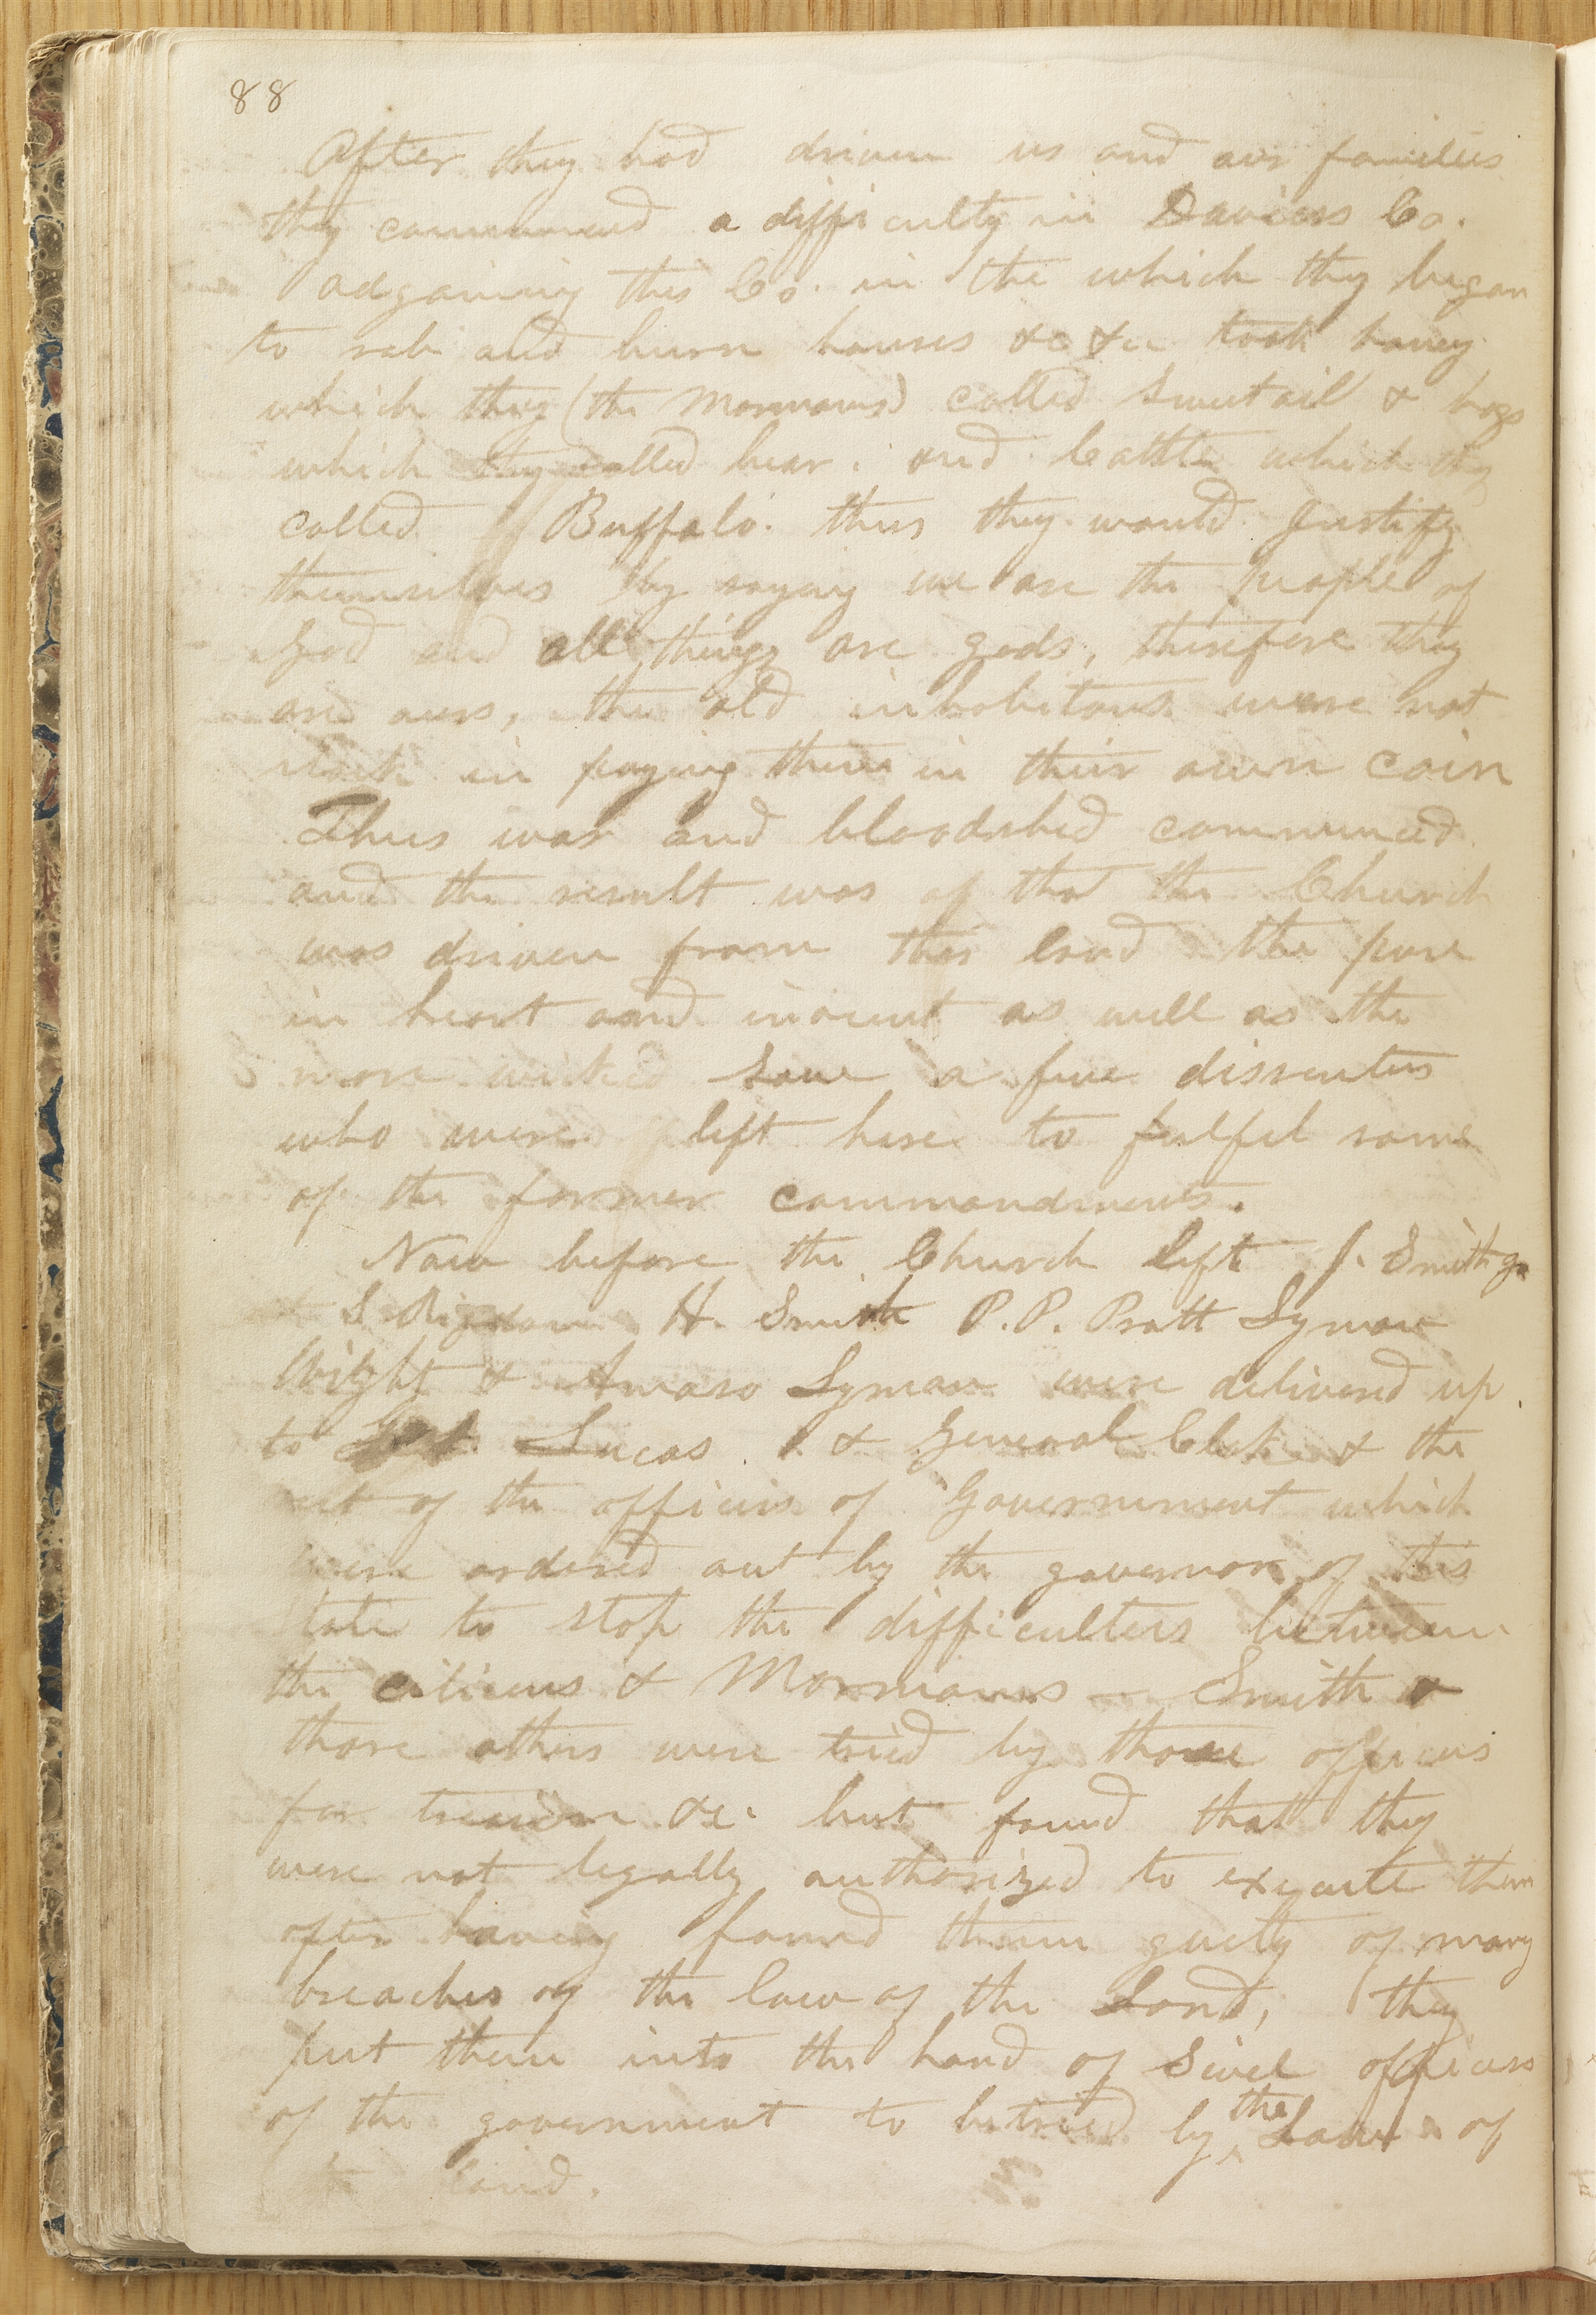 88
After they had driven us and our families
they commenced a difficulty in Daviess Co.
adgoining this Co. in the which they began
to rob and burn houses &c &c took honey
which they (the Mormons) called Sweetoil & hogs
which they called bear. and Cattle which they
called Buffalo. thus they would justify
themselves by saying we are the people of
God and all things are gods, therefore they
are ours, the old inhabitans were not
slack in paying them in their own coin
Thus war and bloodshed commenced
and the result was of that the Church
was driven from this land the pure
in heart and inocent as well as the
more wicked save a few dissenters
who were left here to fulfel some
of the former commandments.
Now before the Church left J. Smith Jr
S Rigdon H. Smith P.P. Pratt Lyman
Wight & Amasa Lyman were delivered up
to Lucas & General Clak & the
rest of the officers of Government which
were ordered out by the governor of this
state to stop the difficulters between
the citizens & Mormons — Smith &
those others were tried by those officers
for treason &c. but found that they
were not legally authorized to execute them
after having found them guilty of many
breaches of the law of the Land, they
put them into the hand of Sivel officers
of the government to be tried by the Laws of
the land.